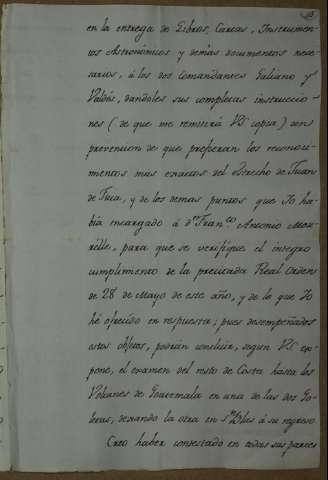 en la entrega de Libros, Cartas, Instrumen-
tos Astronómicos y demas documentos nece-
sarios, á los dos Comandantes Galiano y
Valdés, dandoles sus completas instruccio-
nes (de que me remitirá VS copia) con
prevencion de que prefieran los reconoci-
mientos mas exactos del Estrecho de Juan
de Fuca, y de los demas puntos que Yo ha-
bia encargado á dn. Franco. Antonio Mou-
relle, para que se verifique el integro
cumplimento de la precitada Real Orden
de 28 de Mayo de este año, y de lo que Yo
hé ofrecido en respuesta; pues desempeñados
estos objetos, podrán concluir, segun VS ex-
pone, el examen del resto de Costa hasta los
Volcanes de Goatemala en una de las dos Go-
letas, dexando la otra en Sn. Blas á su regreso
Creo haber contestado en todas sus partes